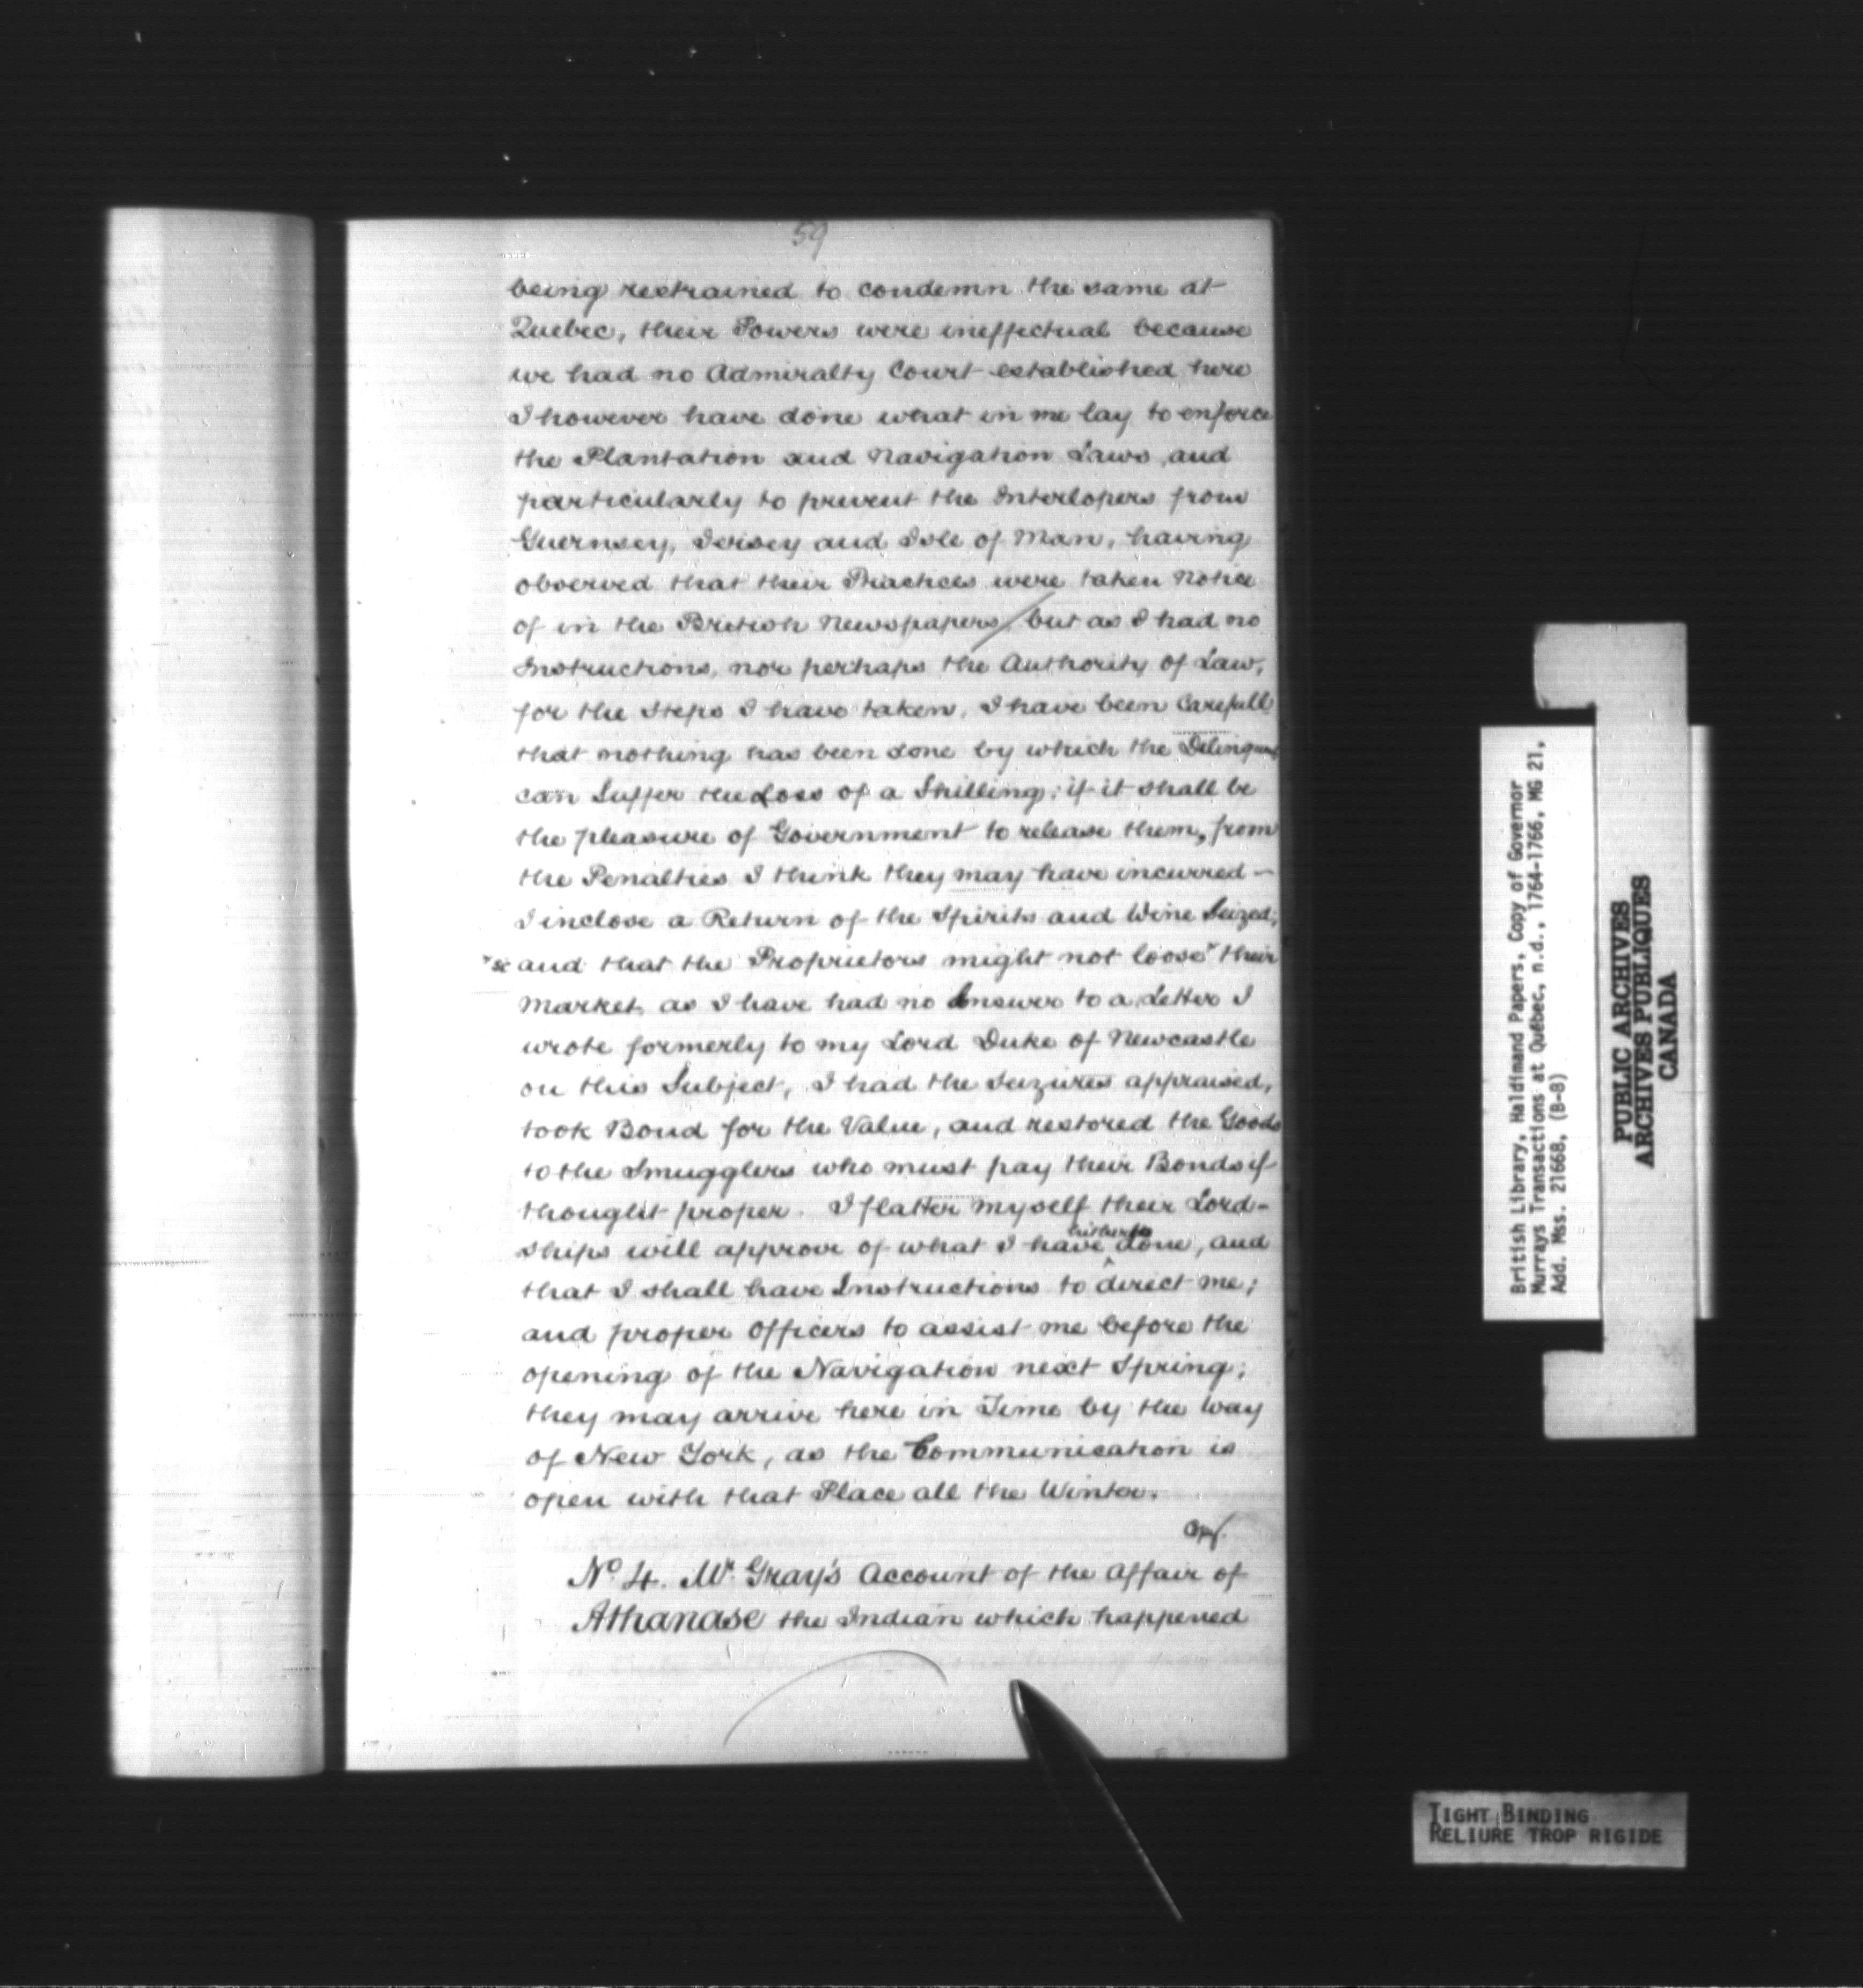 59
being restrained to condemn the same at
Quebec, their Powers were ineffectual because
we had no Admiralty Court established here
I however have done what in me lay to enforce
the Plantation and Navigation Laws, and
particularly to prevent the Interlopers from
Guernsey, Jersey and Isle of Man, having
observed that their Practices were taken Notice
of in the British Newspapers, but as I had no
Instructions, nor perhaps the Authority of Law,
for the Steps I have taken, I have been Carefull
that nothing has been done by which the
can Suffer the Loss of a Shilling; if it shall be
the pleasure of Government to release them, from
the Penalties I think they may have incurred —
I inclose a Return of the Spirits and Wine Seized;
* sic and that the Proprietors might not loose * their
Market, as I have had no Answer to a Letter I
wrote formerly to my Lord Duke of Newcastle
on this Subject, I had the Seizures appraised,
took Bond for the Value, and restored the Goods
to the Smugglers who must pay their Bonds if
thought proper. I flatter myself their Lord-
ships will approve of what I have hitherto done, and
that I shall have Instructions to direct me;
and proper Officers to assist me before the
opening of the Navigation next Spring;
they may arrive here in Time by the Way
of New York, as the Communication is
open with that Place all the Winter.
Copy.
No. 4. Mr. Gray's Account of the Affair of
Athanase the Indian which happened
British Library, Haldimand Papers, Copy of Governor
Murrays Transactions at Québec, n.d., 1764-1766, MG 21,
Add. Mss. 21668, (B-8)
PUBLIC ARCHIVES
ARCHIVES PUBLIQUES
CANADA
TIGHT BINDING
RELIURE TROP RIGIDE